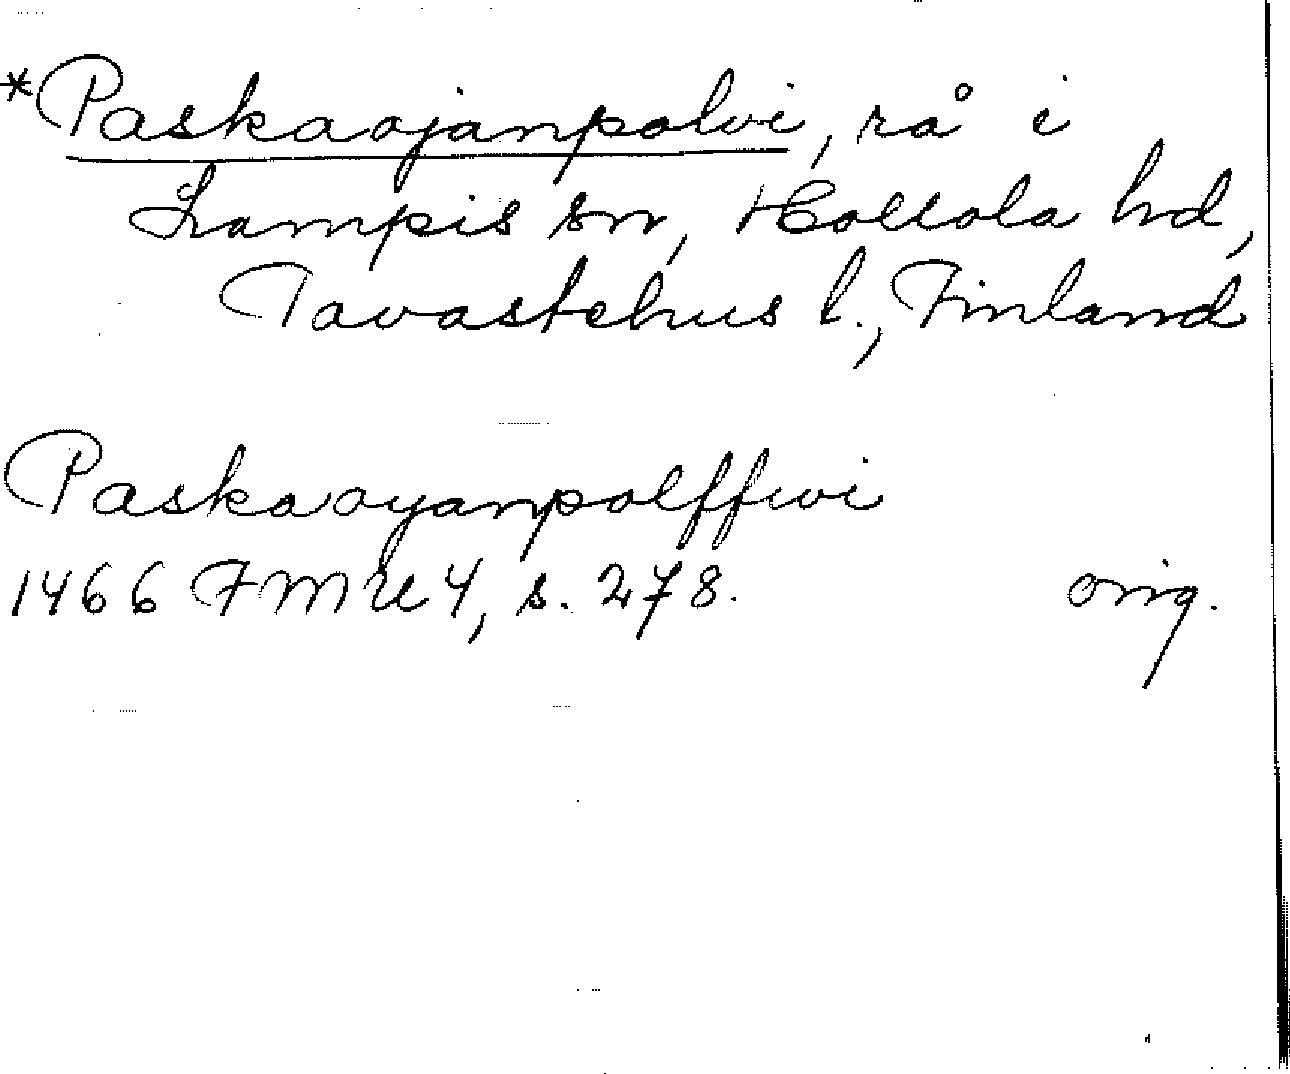 *Paskaojanpolvi, rå i
Lampis sn, Hollola hd,
Tavastehus l., Finland
Paskaoyanpolffwi
1466 FMU 4, s. 278. orig.